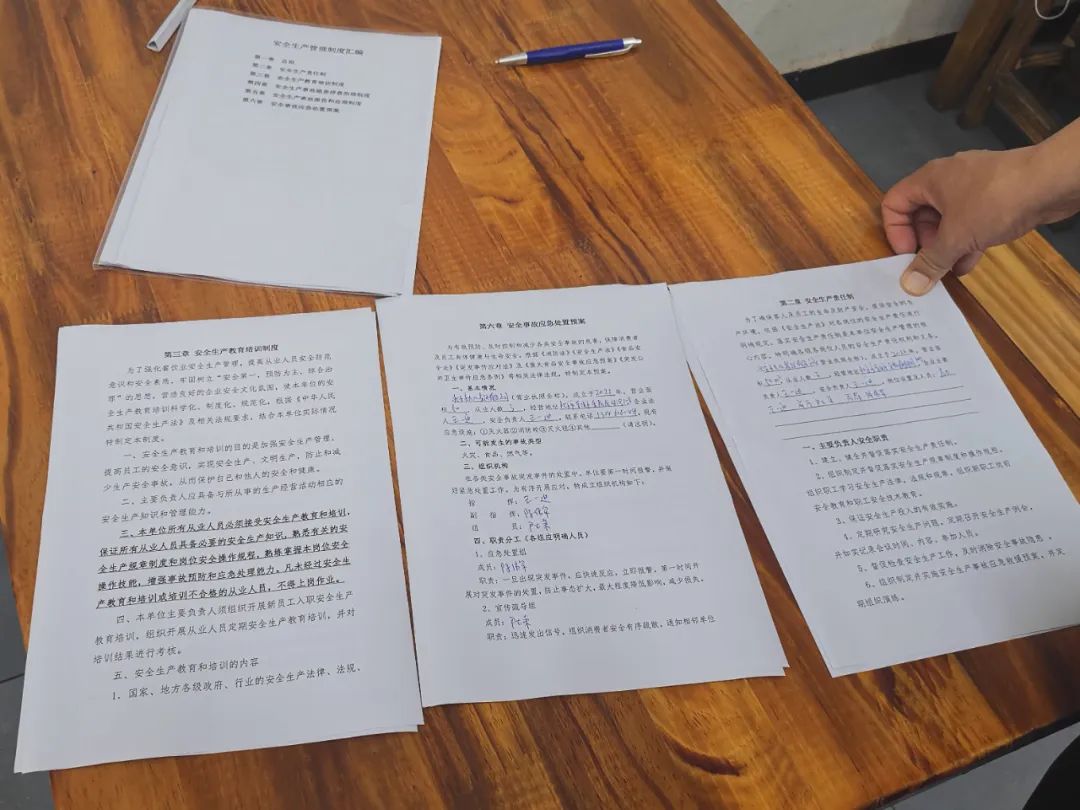 安全生产管理制度汇编
第一章 总则
第二章 安全生产责任制
第三章 安全生产教育培训制度
第四章 安全生产事故隐患排查治理制度
第五章 安全生产事故报告和处理制度
第六章 安全事故应急处置预案
第三章 安全生产教育培训制度
为了强化餐饮业安全生产管理，提高从业人员安全防范
意识和安全素质，牢固树立“安全第一，预防为主，综合治
理”的思想，营造良好的企业安全文化氛围，使本单位的安
全生产教育培训科学化、制度化、规范化，根据《中华人民
共和国安全生产法》及相关法规要求，结合本单位实际情况
特制定本制度。
一、安全生产教育和培训的目的是加强安全生产管理，
提高员工的安全意识，实现安全生产、文明生产，防止和减
少生产安全事故，从而保护自己和他人的安全和健康。
二、主要负责人应具备与所从事的生产经营活动相应的
安全生产知识和管理能力。
三、本单位所有从业人员必须接受安全生产教育和培训，
保证所有从业人员具备必要的安全生产知识，熟悉有关的安
全生产规章制度和岗位安全操作规程，熟练掌握本岗位安全
操作技能，增强事故预防和应急处理能力。凡未经过安全生
产教育和培训或培训不合格的从业人员，不得上岗作业。
四、本单位主要负责人须组织开展新员工入职安全生产
教育培训，组织开展从业人员定期安全生产教育培训，并对
培训结果进行考核。
五、安全生产教育和培训的内容
1、国家、地方各级政府、行业的安全生产法律、法规、
第六章 安全事故应急处置预案
为有效预防、及时控制和减少各类安全事故的危害，保障消费者
及员工身体健康与生命安全，根据《消防法》《安全生产法》《食品安
全法》《突发事件应对法》及《重大食品安全事故应急预案》《突发公
共卫生事件应急条例》等相关法律法规，特制定本预案。
一、基本情况
（营业执照全称），成立于2021年，营业面
积，从业人数，经营地址，企业法
人王一迪，安全负责人王一迪，联系电话，现有
应急设施：①灭火器②消防栓③灭火毯④其他（请注明）。
二、可能发生的事故类型
火灾、食品、燃气等。
三、组织机构
在各类安全事故突发事件的处置中，单位要第一时间报警，并做
好应急处置工作，为有序开展应对，特成立组织机构如下：
指 挥：王一迪
副 指 挥：
组 员：
四、职责分工（各组应明确人员）
1、应急处置组
成员：
职责：一旦出现突发事件，应快速反应，立即报警，第一时间开
展对突发事件的处置，防止事态扩大，最大程度降低影响，减少损失。
2、宣传疏导组
成员：
职责：迅速发出信号，组织消费者安全有序疏散，通知相邻单位
第二章 安全生产责任制
为了确保客人及员工的生命及财产安全，提供安全的生
产环境，依据《安全生产法》对各岗位的安全生产责任进行
明确规定，落实安全生产责任是本单位安全生产管理的核
心内容，特明确各级各岗位人员的安全生产责任权利和义务。
（营业执照全称），成立于2021年，营业面
积，从业人数，经营地址，企业主要
负责人王一迪，安全负责人王一迪，
一、主要负责人安全职责
1、建立、健全并督促落实安全生产责任制。
2、组织制定并督促落实安全生产规章制度和操作规程，
组织职工学习安全生产法律、法规和规章，组织新职工岗前
安全教育和职工安全技术教育。
3、保证安全生产投入的有效实施。
4、定期研究安全生产问题，定期召开安全生产例会，
并如实记录会议时间、内容、参加人员。
5、督促检查安全生产工作，及时消除安全事故隐患。
6、组织制定并实施安全生产事故应急救援预案，并定
期组织演练。